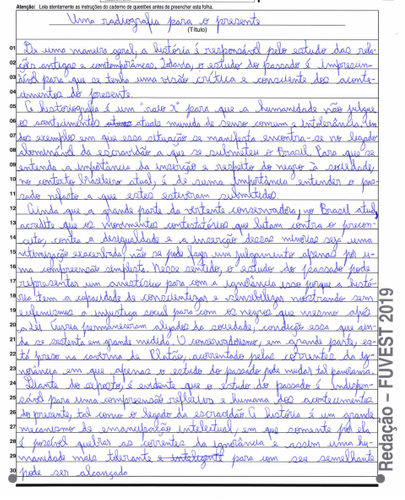 Atenção: Leia atentamente as instruções do caderno de questões antes de preencher esta folha.
Uma radiografia para o presente
(Título)
01 De uma maneira geral, a história é responsável pelo estudo das rela-
02 ções antigas e contemporâneas. Todavia, o estudo do passado é imprescin-
03 dível para que se tenha uma visão crítica e consciente dos aconte-
04 cimentos do presente.
05 A historiografia é um "raio x" para que a humanidade não julgue
06 os acontecimentos atuais munida de senso comum e intolerância. Um
07 dos exemplos em que essa situação se manifesta encontra-se no legado
08 abominável da escravidão a que se submeteu o Brasil. Para que se
09 entenda a importância da inserção e respeito do negro à sociedade,
10 no contexto brasileiro atual, é de suma importância entender o pas-
11 sado nefasto a que estes estiveram submetidos.
12 Ainda que a grande parte da vertente conservadora, no Brasil atual,
13 acredite que os movimentos contestatórios que lutam contra o precon-
14 ceito, contra a desigualdade e a inserção dessas minorias seja uma
15 vitimização exacerbada, não se pode fazer um julgamento apenas por u-
16 ma compreensão simplista. Nesse sentido, o estudo do passado pode
17 representar um anestésico para com a ignorância isso porque a histó-
18 ria tem a capacidade de conscientizar e sensibilizar mostrando sem
19 eufemismos a injustiça social para com os negros que mesmo após
20 a Lei Áurea permaneceram alijados da sociedade, condição essa que ain-
21 da se sustenta em grande medida. O conservadorismo, em grande parte, es-
22 tá preso na caverna de Platão, acorrentado pelas correntes da ig-
23 norância em que apenas o estudo do passado pode mudar tal panorama.
24 Diante do exposto, é evidente que o estudo do passado é indispen-
25 sável para uma compreensão reflexiva e humana dos acontecimentos
26 do presente, tal como o legado da escravidão. A história é um grande
27 mecanismo de emancipação intelectual, em que somente por ela
28 é possível quebrar as correntes da ignorância e assim uma hu-
29 manidade mais tolerante e inteligente para com seu semelhante
30 pode ser alcançado
Redação – FUVEST 2019